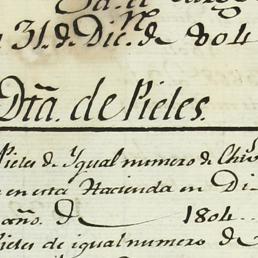 31. de Dic.re de 804
Dta. de Pieles.
Pieles de Ygual numero de
en esta Hacienda en Di
año. de 1804
Pieles de igual numero de